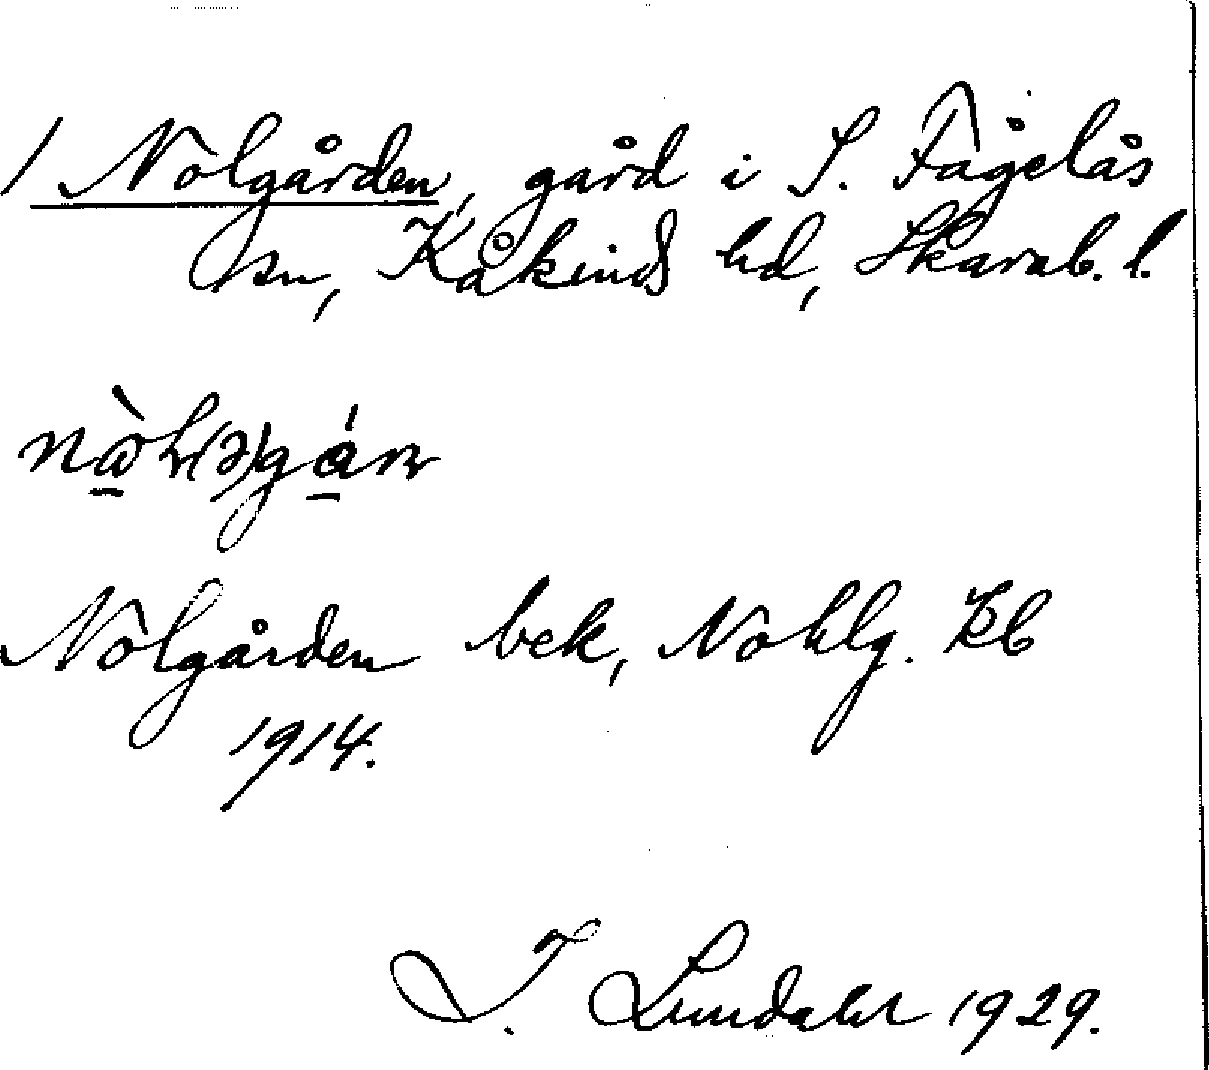 1 Nolgården, gård i S. Fågelås
sn, Kåkinds hd, Skarab. l.
Nolgården bek, Nohlg. Kb
1914.
I. Lundahl 1929.